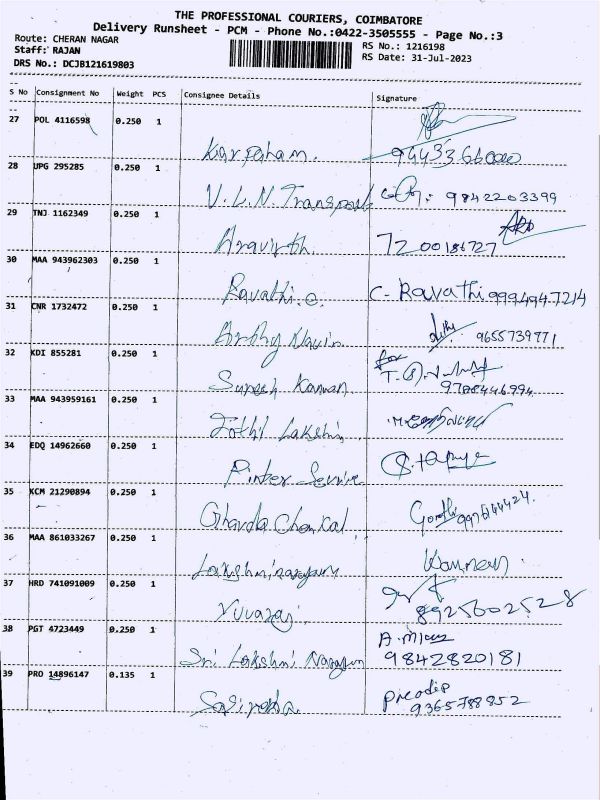 THE PROFESSIONAL COURIERS, COIMBATORE
Delivery Runsheet - PCM - Phone No.:0422-3505555 - Page No.:3
Route: CHERAN NAGAR
Staff: RAJAN
RS No.: 1216198
DRS No.: DCJB121619803
RS Date: 31-Jul-2023
S No Consignment No Weight PCS Consignee Details Signature
27 POL 4116598 0.250 1
Karpaham.
28 UPG 295285 0.250 1
V.L.N. Transport 9842203399
29 TNJ 1162349 0.250 1
Aravinth 7200186727
30 MAA 943962303 0.250 1
Ravathi.c. C. Ravathi 9994947214
31 CNR 1732472 0.250 1
Arthy Navin 9655739771
32 KDI 855281 0.250 1
for
Suresh Kannan
9788446994
33 MAA 943959161 0.250 1
Jothi Lakshmi
34 EDQ 14962660 0.250 1
Service
35 KCM 21290894 0.250 1
36 MAA 861033267 0.250 1
Lakshminarayanan
37 HRD 741091009 0.250 1
Yuvaraj 8925602528
38 PGT 4723449 0.250 1
Sri Lakshmi Narayan 9842820181
39 PRO 14896147 0.135 1
Sasirekha. 9365788852